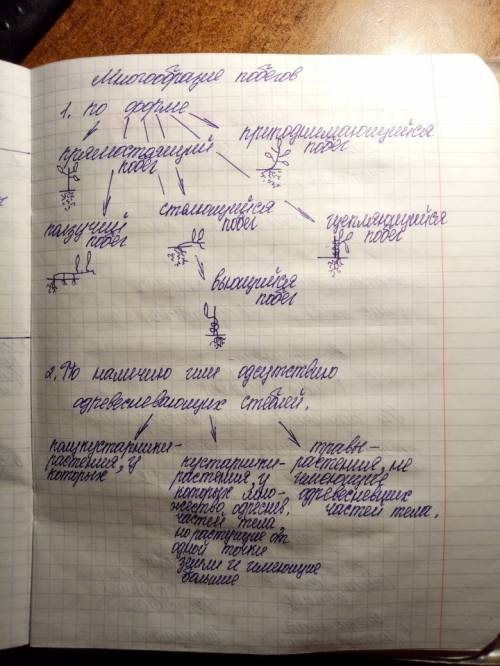 Многообразие побегов
1. по форме
приподнимающийся
побег
прямостоящий
побег
стелющийся
побег
цепляющийся
побег
ползучий
побег
вьющийся
побег
2. По наличию или одсутствию
одревесневающих стеблей.
полукустарники-
растения, у
которых
кустарники-
растения, у
которых мно-
жество одреснев.
частей тела
но растущие от
одной точки
земли и имеющие
большие
травы-
растения, не
имеющие
одревесневших
частей тела.